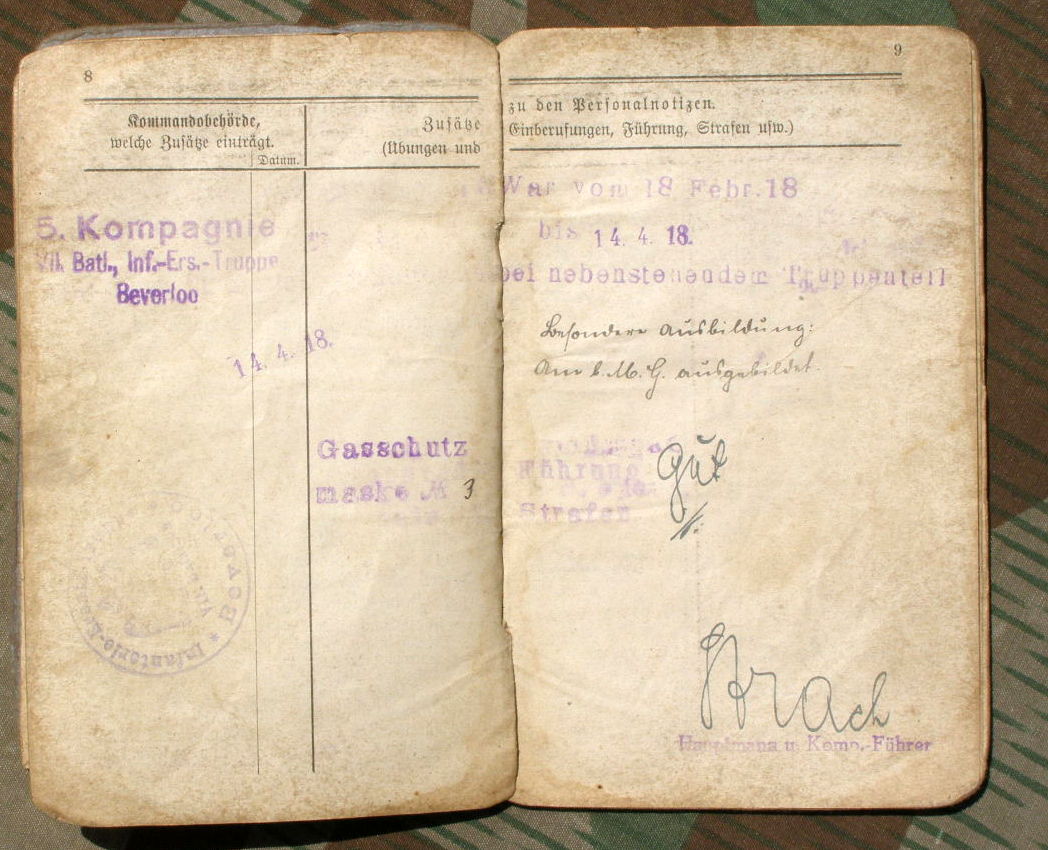 8
Kommandobehörde,
welche Zusätze einträgt.
Datum.
Zusätze
(Übungen und
5. Kompagnie
VII. Batl., Inf.-Ers.-Truppe
Beverloo
14. 4. 18.
Gasschutz
maske M 3
Infanterie
9
zu den Personalnotizen.
Einberufungen, Führung, Strafen usw.)
War vom 18 Febr. 18
bis 14. 4. 18.
bei nebenstehendem Truppenteil
Besondere Ausbildung:
Am l. M. G. ausgebildet.
Führung gut
Strafen
Brach
Hauptmann u. Komp.-Führer